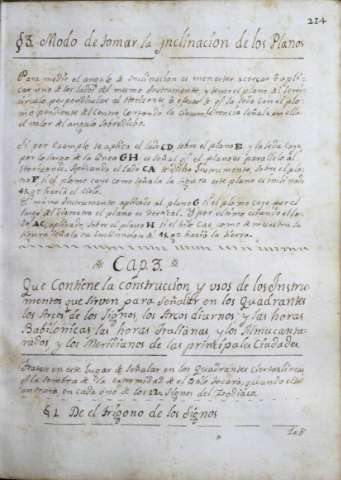 214
§3. Modo de tomar la Jnclinacion de los Planos
Para medir el angulo de Inclinacion es menester
uno de los lados del mismo Instrumento, y tener el plano del
circulo perpendicular al Horizonte
pendiente del Centro cortando la Circunferencia señala en ella
el valor del angulo
Si por exemplo se aplica el lado CD sobre el plano E y la seda caye
por lo largo de la linea GH es señal q̃ el plano es paralelo al
Horizonte. Aplicando el lado CA Instrumento, sobre el pla-
no F si el pendiente caye como señala la figura este plano
45 gs hazia el Cielo.
El mismo Instrumento aplicado al plano G si el plomo caye por el
largo del diametro el plano es Vertical. Y por ultimo estando el la-
do AC, aplicado sobre el plano H si el hilo Cae, como demuestra la
figura señala su inclinacion de 45 gs hazia la tierra.
Cap. 3.
Que Contiene la construccion y usos de los Instru-
mentos que sirven para señalar en los Quadrantes
los Arcos de los Signos, los Arcos diurnos y las horas
Babilonicas las horas Jtalianas y los Almucanta-
rados y los Meridianos de las principales Ciudades
Trataré en este lugar de señalar en los Quadrantes
q̃ la sombra de la extremidad de el tocará, quando el Sol
entrare en cada uno de los 12 signos del Zodiaco.
§1. De el trigono de los Signos